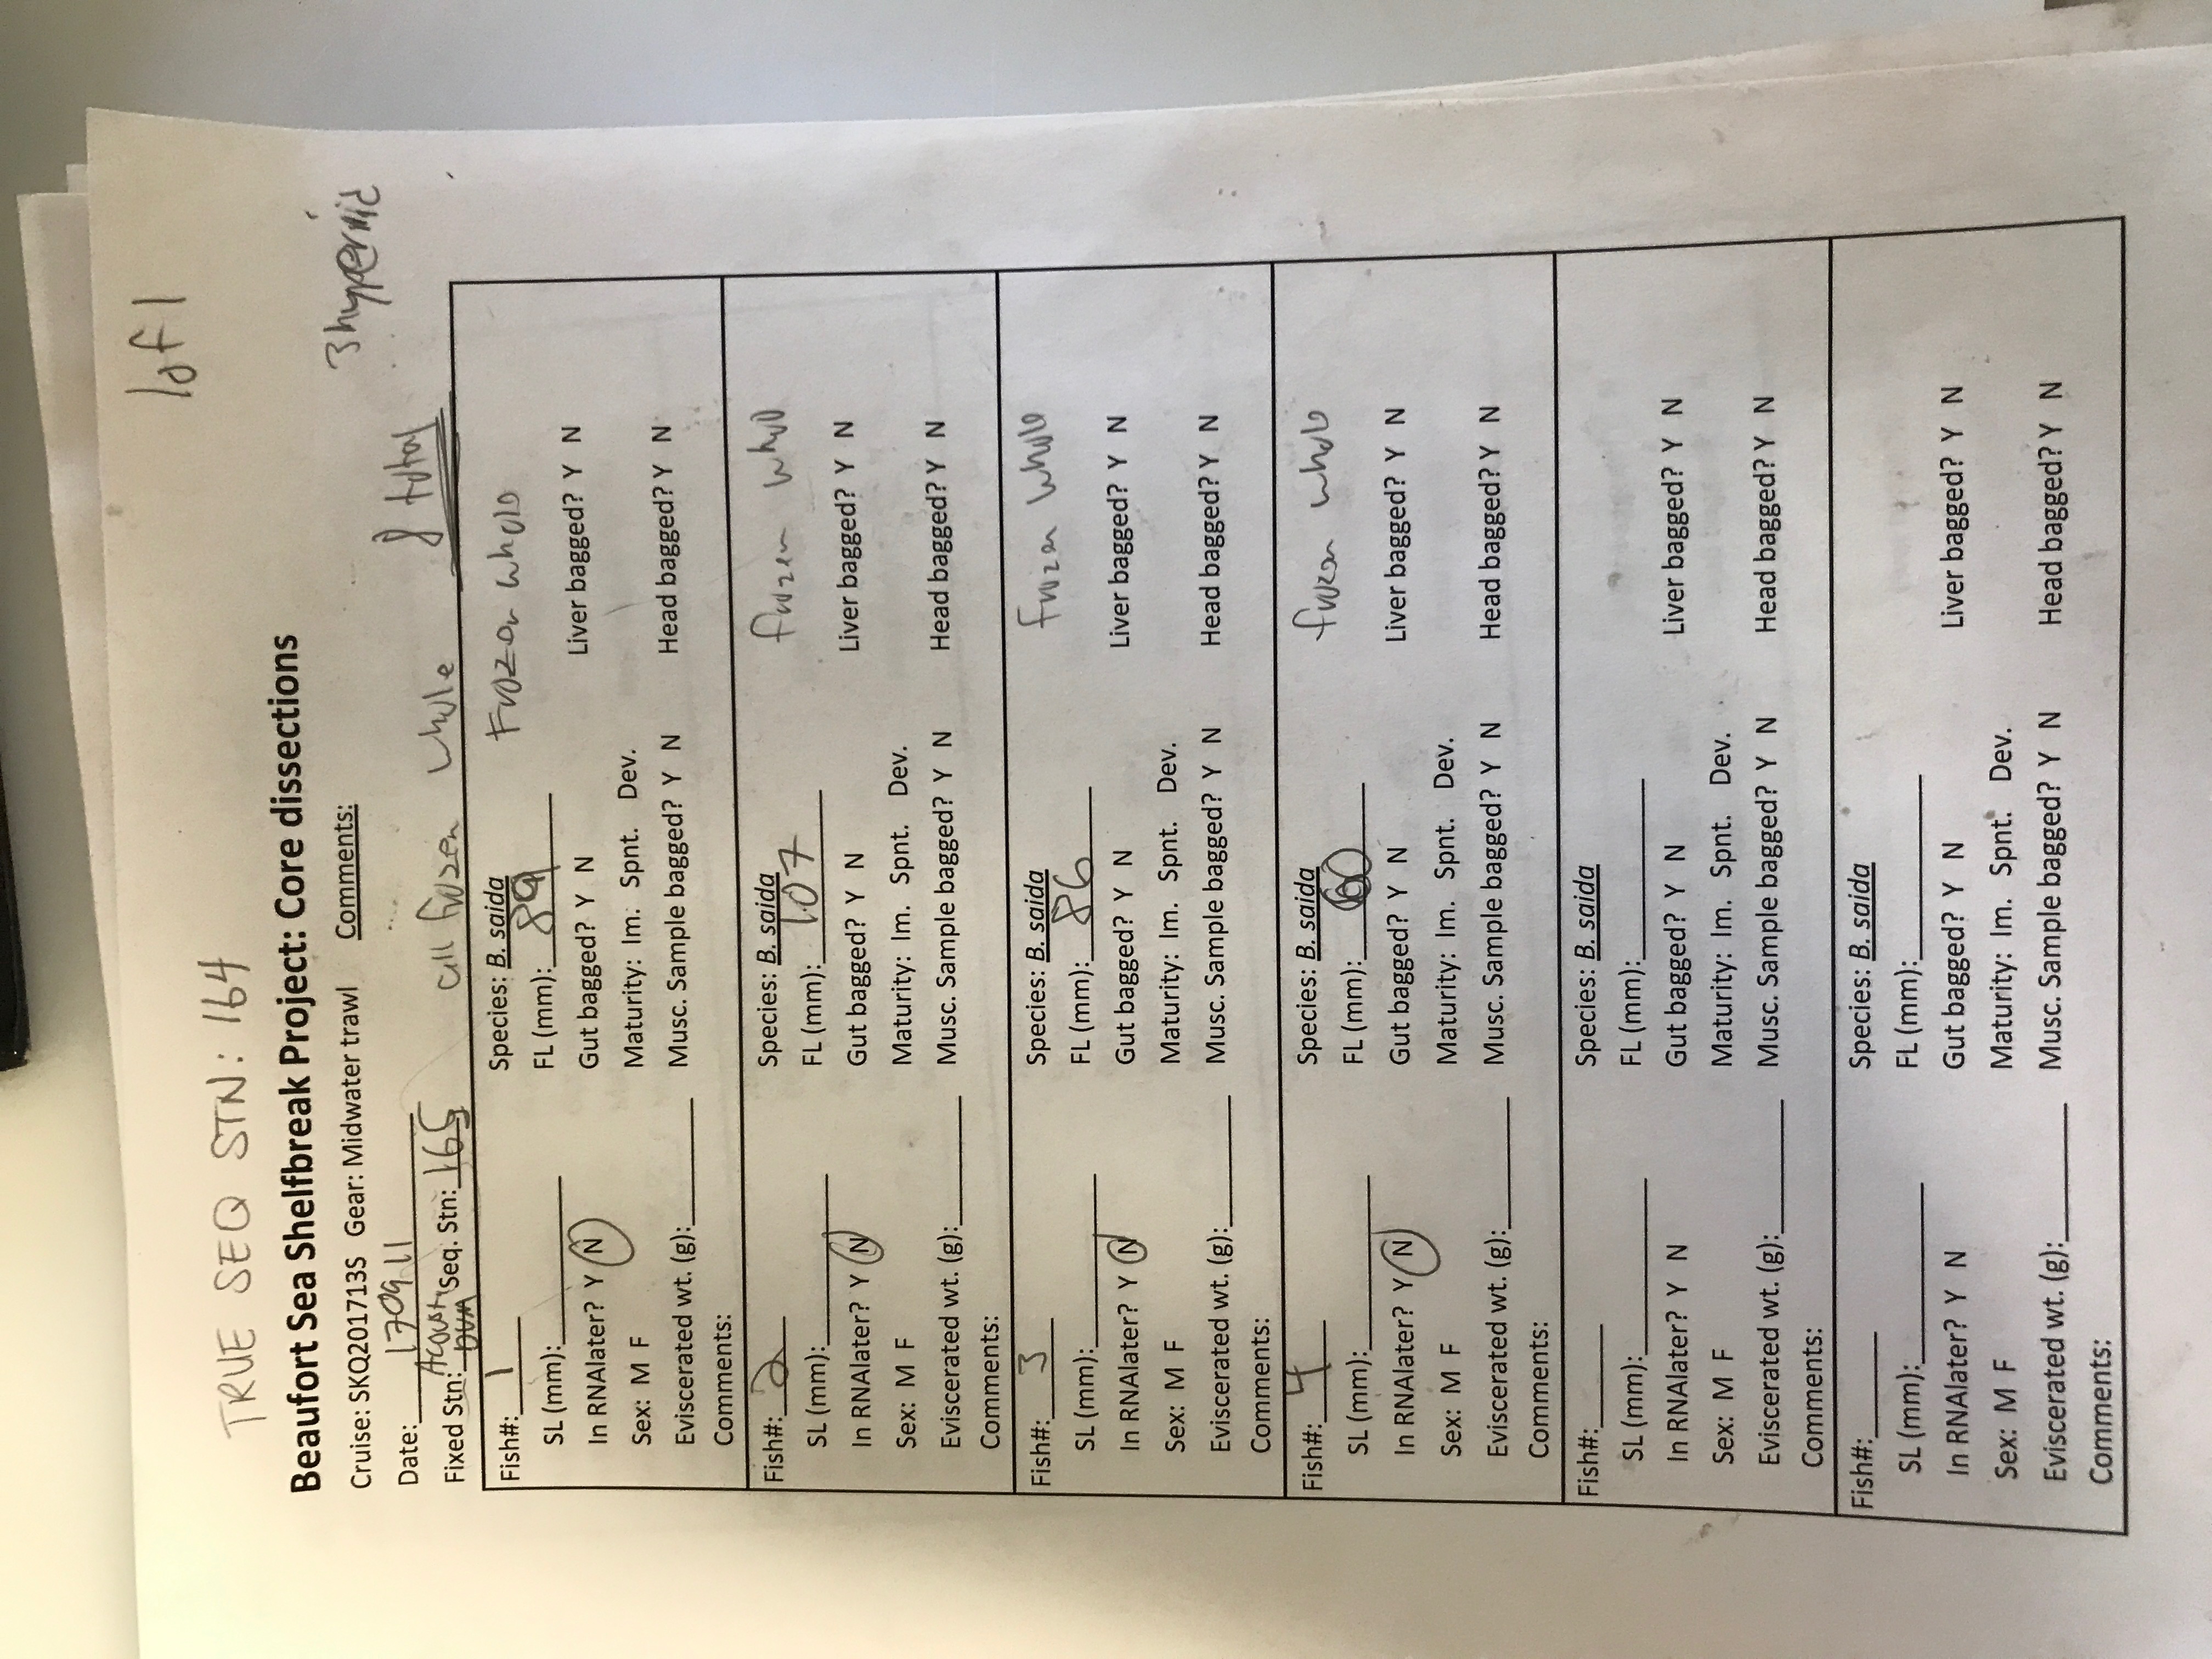 1 of 1
TRUE SEQ STN: 164
Beaufort Sea Shelfbreak Project: Core dissections
Cruise: SKQ201713S Gear: Midwater trawl Comments: 3 hyperiid
Date: 170911 8 total
Fixed Stn: Seq. Stn: 165 all frozen whole
Fish#: 1 Species: B. saida Frozen whole
SL (mm): FL (mm): 89
In RNAlater? Y N Gut bagged? Y N Liver bagged? Y N
Sex: M F Maturity: Im. Spnt. Dev.
Eviscerated wt. (g): Musc. Sample bagged? Y N Head bagged? Y N
Comments:
Fish#: 2 Species: B. saida frozen whole
SL (mm): FL (mm): 107
In RNAlater? Y N Gut bagged? Y N Liver bagged? Y N
Sex: M F Maturity: Im. Spnt. Dev.
Eviscerated wt. (g): Musc. Sample bagged? Y N Head bagged? Y N
Comments:
Fish#: 3 Species: B. saida Frozen whole
SL (mm): FL (mm): 86
In RNAlater? Y N Gut bagged? Y N Liver bagged? Y N
Sex: M F Maturity: Im. Spnt. Dev.
Eviscerated wt. (g): Musc. Sample bagged? Y N Head bagged? Y N
Comments:
Fish#: 4 Species: B. saida frozen whole
SL (mm): FL (mm):
In RNAlater? Y N Gut bagged? Y N Liver bagged? Y N
Sex: M F Maturity: Im. Spnt. Dev.
Eviscerated wt. (g): Musc. Sample bagged? Y N Head bagged? Y N
Comments:
Fish#: Species: B. saida
SL (mm): FL (mm):
In RNAlater? Y N Gut bagged? Y N Liver bagged? Y N
Sex: M F Maturity: Im. Spnt. Dev.
Eviscerated wt. (g): Musc. Sample bagged? Y N Head bagged? Y N
Comments:
Fish#: Species: B. saida
SL (mm): FL (mm):
In RNAlater? Y N Gut bagged? Y N Liver bagged? Y N
Sex: M F Maturity: Im. Spnt. Dev.
Eviscerated wt. (g): Musc. Sample bagged? Y N Head bagged? Y N
Comments: